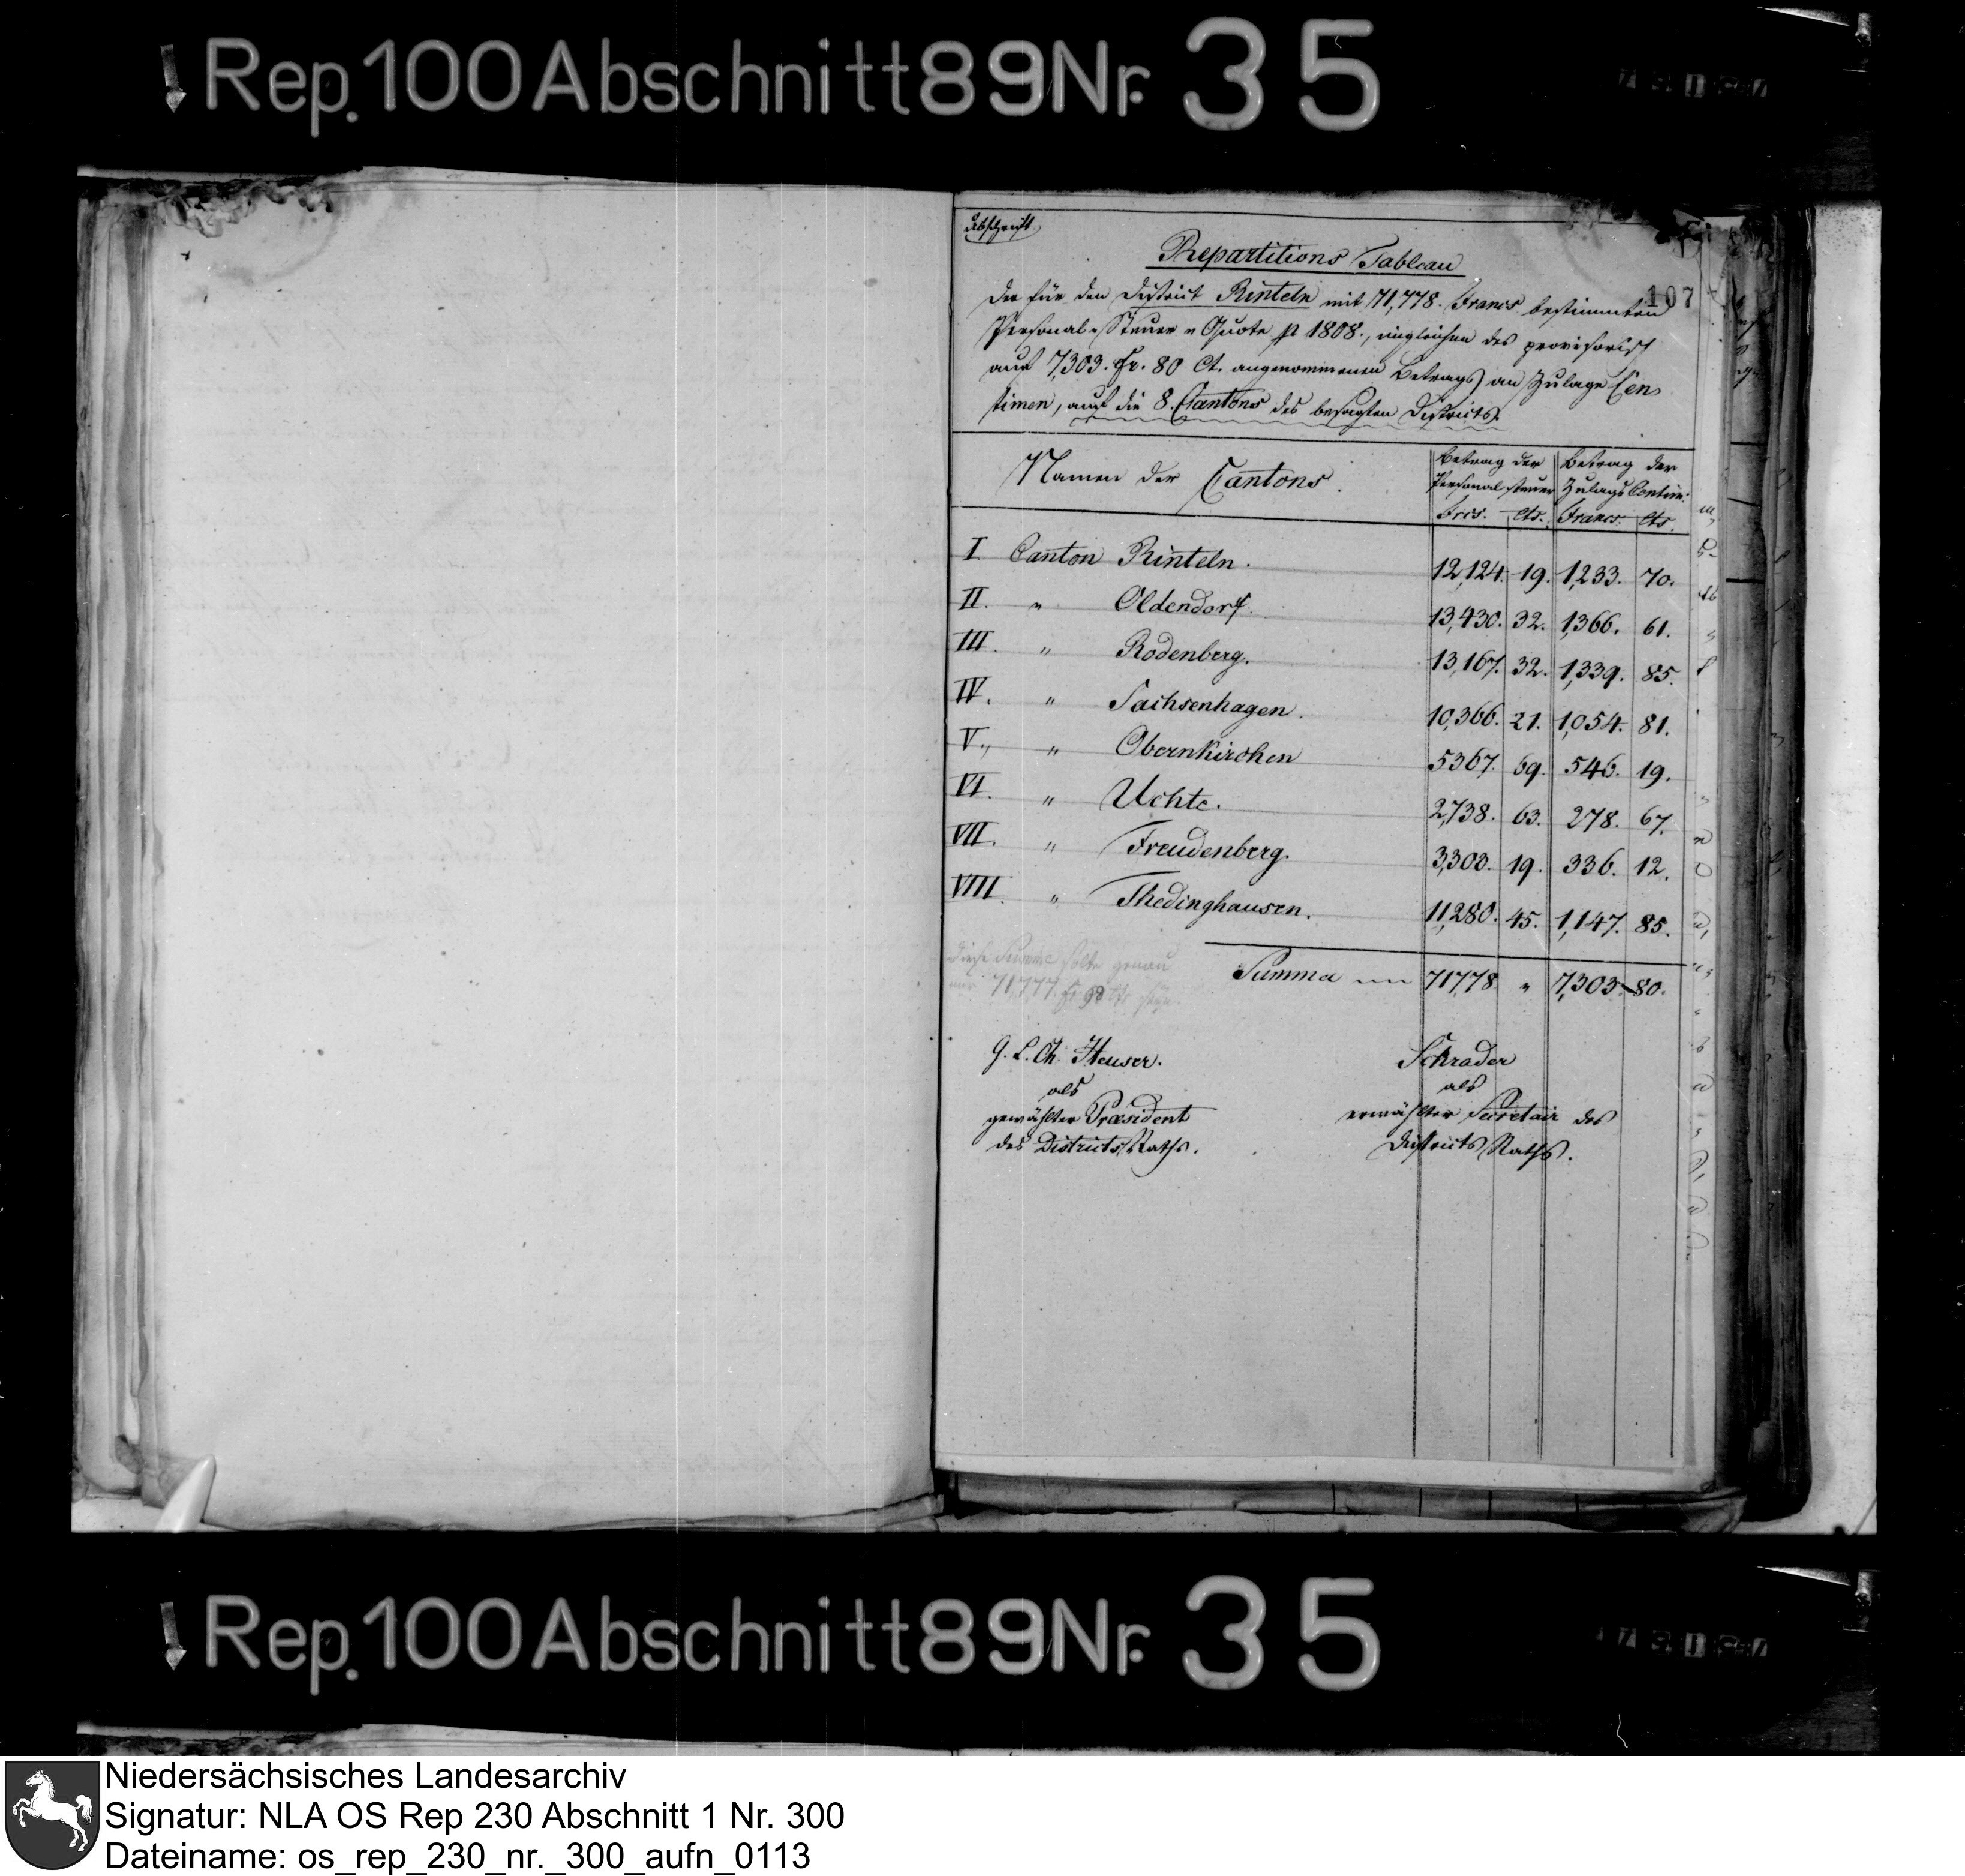 Rep. 100 Abschnitt 89 Nr. 35
Abschrift.
Repartitions Tableau
107
Der für den District Rinteln mit 71,778. Francs bestimmten
Personal-Steuer-Quote p 1808., ingleichen des provisorisch
auf 7,303. Fr. 80 Ct. angenommenen Betrags an Zulage Cen
timen, auf die 8. Cantons des besagten Districts.
Namen der Cantons. Betrag der Personal steuer Betrag der Zulags Centim:
Frcs. Cts. Francs. Cts.
I. Canton Rinteln. 12,124. 19. 1,233. 70.
II. " Oldendorf. 13,430. 32. 1,366. 61.
III. " Rodenberg. 13,167. 32. 1,339. 85.
IV. " Sachsenhagen. 10,366. 21. 1,054. 81.
V., " Obernkirchen 5367. 69. 546. 19.
VI. " Uchte. 2,738. 63. 278. 67.
VII. " Freudenberg. 3,303. 19. 336. 12.
VIII. " Thedinghausen. 11,280. 45. 1,147. 85.
Summa 71,778 " 7,303. 80.
diese Summe sollte genau
nur 71,777. fr 98 Cts seyn.
G. L. Ch. Heuser.
als
gewählter Præsident
des Districts Raths.
Schrader
als
erwählter Secretair des
Districts Raths.
Rep. 100 Abschnitt 89 Nr. 35
Niedersächsisches Landesarchiv
Signatur: NLA OS Rep 230 Abschnitt 1 Nr. 300
Dateiname: os_rep_230_nr._300_aufn_0113